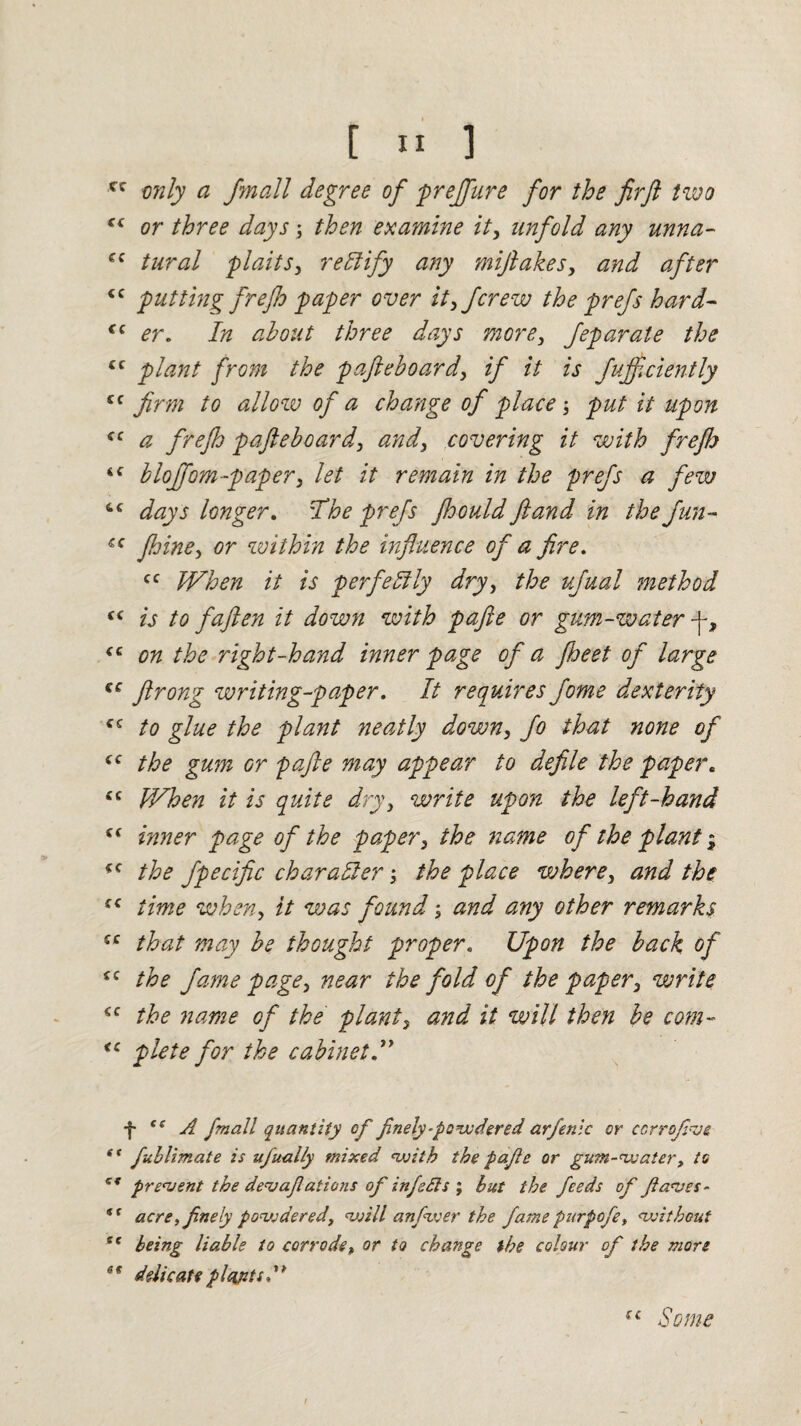 [ 11 ]
“ only a ſmall degree of preſſure for the firſt two
“ or three days ; then examine it, unfold any unna-
“ tural plaits, rectify any miſtakes, and after
“ putting freſh paper over it, ſcrew the preſs hard-
“ er. In about three days more, ſeparate the
“ plant from the paſteboard, if it is ſufficiently
“ firm to allow of a change of place ; put it upon
“ a freſh paſteboard, and, covering it with freſh
“ bloſſom-paper, let it remain in the preſs a few
“ days longer. The preſs ſhould ſtand in the ſun-
“ ſhine, or within the influence of a fire.
“ When it is perfectly dry, the uſual method
“ is to faſten it down with paſte or gum-water †,
“ on the right-hand inner page of a ſheet of large
“ ſtrong writing-paper. It requires ſome dexterity
“ to glue the plant neatly down, ſo that none of
“ the gum or paſte may appear to defile the paper.
“ When it is quite dry, write upon the left-hand
“ inner page of the paper, the name of the plant ;
“ the ſpecific character ; the place where, and the
“ time when, it was found ; and any other remarks
“ that may be thought proper. Upon the back of
“ the ſame page, near the fold of the paper, write
“ the name of the plant, and it will then be com-
“ plete for the cabinet.”
† “ A ſmall quantity of finely-powdered arſenic or corroſive
“ ſublimate is uſually mixed with the paſte or gum-water, to
“ prevent the devaſtations of inſects ; but the ſeeds of ſtaves-
“ acre, finely powdered, will anſwer the ſame purpoſe, without
“ being liable to corrode, or to change the colour of the more
“ delicate plants.”
“ Some